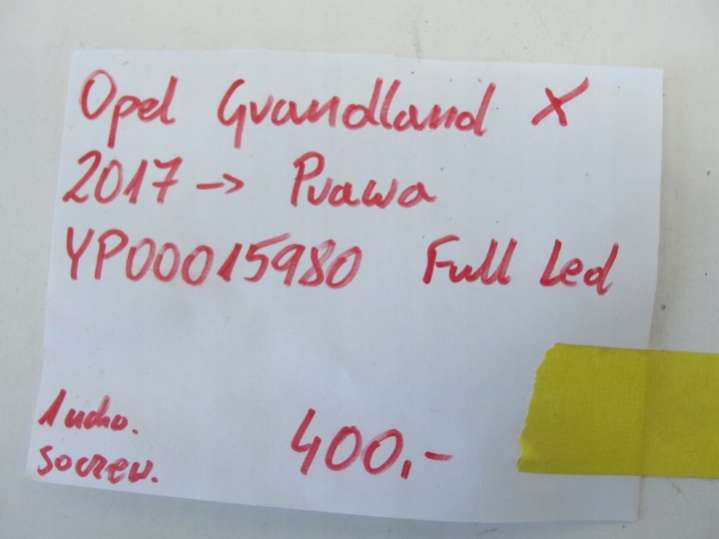 Opel Grandland X
2017 → Prawa
YP00015980 Full Led
1 ucho.
soczew.
400,-